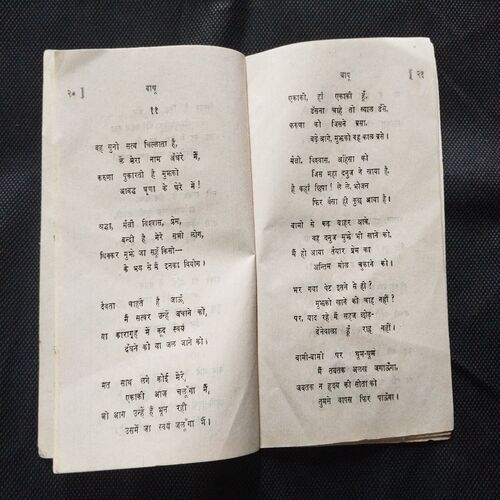 २० ]
बापू
११
वह सुनो सत्य चिल्लाता है,
ले मेरा नाम अँधेरे में,
करुणा पुकारती है मुझको
आबद्ध घृणा के घेरे में !
श्रद्धा, मैत्री विश्वास, प्रेम,
बन्दी हैं मेरे सभी लोग,
धिक्कार मुझे जो सहूँ किसी—
के भय से मैं इनका वियोग ।
देवता चाहते हैं जाऊँ,
मैं सत्वर उन्हें बचाने को,
या कारागृह में कूद स्वयं
बँधने को या जल जाने को ।
मत साथ लगे कोई मेरे,
एकाकी आज चलूँगा मैं,
जो आग उन्हें है भून रही
उसमें जा स्वयं जलूँगा मैं ।
बापू
[ २१
एकाकी, हाँ एकाकी हूँ,
डँसना चाहे तो व्याल डँसे,
करुणा को जिसने ग्रसा,
बढ़े आगे, मुझको वह काल ग्रसे ।
मैत्री, विश्वास, अहिंसा को
जिस महा दनुज ने खाया है,
है कहाँ छिपा ! ले ले, भोजन
फिर वैसा ही कुछ आया है ।
बामी से कढ़ बाहर आवे,
वह दनुज मुझे भी खाने को,
मैं हो आया तैयार प्रेम का
अन्तिम मोल चुकाने को ।
भर गया पेट इतने से ही ?
मुझको खाने की चाह नहीं ?
पर, याद रहे मैं सहज छोड़-
देनेवाला हूँ राह नहीं ।
बामी-बामी पर घूम-घूम
मैं तबतक अलख जगाऊँगा,
जबतक न हृदय की सीता को
तुमसे वापस फिर पाऊँगा ।